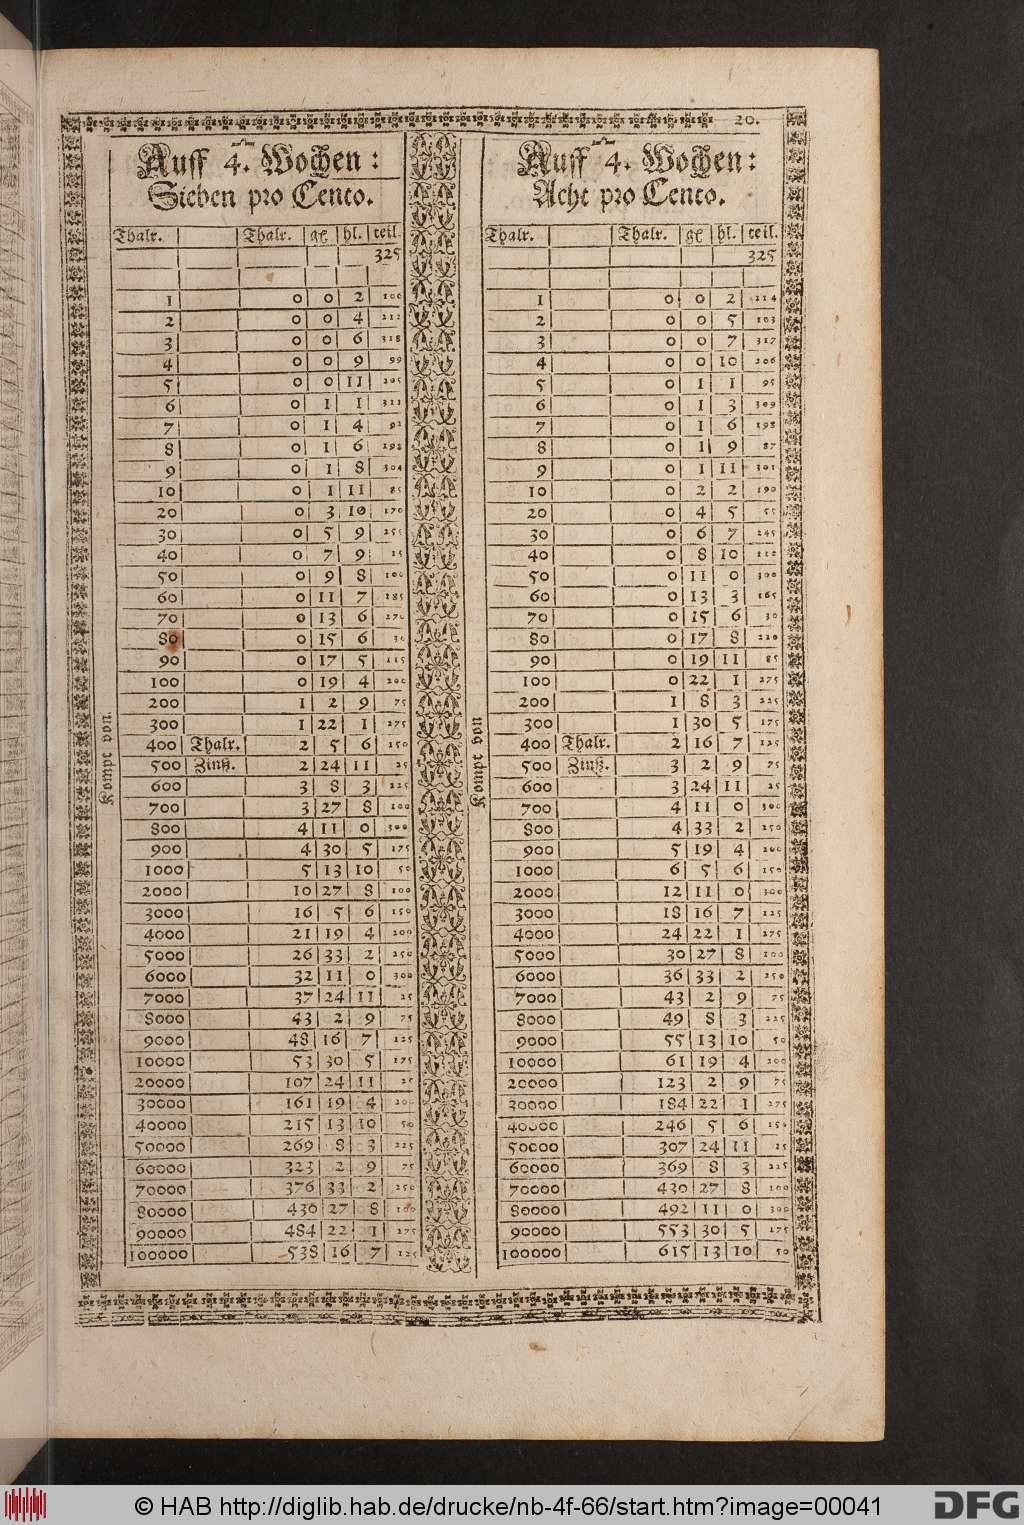 20.
Auff 4. Wochen:
Sieben pro Cento.
Thalr. Thalr. gℓ hl. teil.
325
1 0 0 2 100
2 0 0 4 212
3 0 0 6 318
4 0 0 9 99
5 0 0 11 205
6 0 1 1 311
7 0 1 4 92
8 0 1 6 198
9 0 1 8 304
10 0 1 11 85
20 0 3 10 170
30 0 5 9 255
40 0 7 9 15
50 0 9 8 100
60 0 11 7 185
70 0 13 6 270
80 0 15 6 30
90 0 17 5 115
100 0 19 4 200
200 1 2 9 75
300 1 22 1 275
400 Thalr. 2 5 6 150
500 Zinß. 2 24 11 25
600 3 8 3 225
700 3 27 8 100
800 4 11 0 300
900 4 30 5 175
1000 5 13 10 50
2000 10 27 8 100
3000 16 5 6 150
4000 21 19 4 200
5000 26 33 2 250
6000 32 11 0 300
7000 37 24 11 25
8000 43 2 9 75
9000 48 16 7 125
10000 53 30 5 175
20000 107 24 11 25
30000 161 19 4 200
40000 215 13 10 50
50000 269 8 3 225
60000 323 2 9 75
70000 376 33 2 250
80000 430 27 8 100
90000 484 22 1 275
100000 538 16 7 125
Kompt von.
Auff 4. Wochen:
Acht pro Cento.
Thalr. Thalr. gℓ hl. teil.
325
1 0 0 2 214
2 0 0 5 103
3 0 0 7 317
4 0 0 10 206
5 0 1 1 95
6 0 1 3 309
7 0 1 6 198
8 0 1 9 87
9 0 1 11 301
10 0 2 2 190
20 0 4 5 55
30 0 6 7 245
40 0 8 10 110
50 0 11 0 300
60 0 13 3 165
70 0 15 6 30
80 0 17 8 220
90 0 19 11 85
100 0 22 1 275
200 1 8 3 225
300 1 30 5 175
400 Thalr. 2 16 7 125
500 Zinß. 3 2 9 75
600 3 24 11 25
700 4 11 0 300
800 4 33 2 250
900 5 19 4 200
1000 6 5 6 150
2000 12 11 0 300
3000 18 16 7 125
4000 24 22 1 275
5000 30 27 8 100
6000 36 33 2 250
7000 43 2 9 75
8000 49 8 3 225
9000 55 13 10 50
10000 61 19 4 200
20000 123 2 9 75
30000 184 22 1 275
40000 246 5 6 150
50000 307 24 11 25
60000 369 8 3 225
70000 430 27 8 100
80000 492 11 0 300
90000 553 30 5 175
100000 615 13 10 50
Kompt von
© HAB http://diglib.hab.de/drucke/nb-4f-66/start.htm?image=00041
DFG